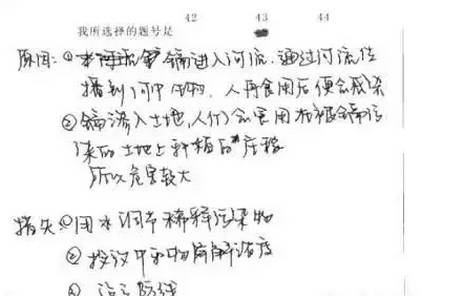 42 43 44
我所选择的题号是
原因:①镉进入河流,通过河流传
播到河中生物,人再食用后便会感染
②镉渗入土地,人们会食用在被镉污
染的土地上种植的庄稼
所以危害较大
措失①用水调节稀释污染物
②投放中和物